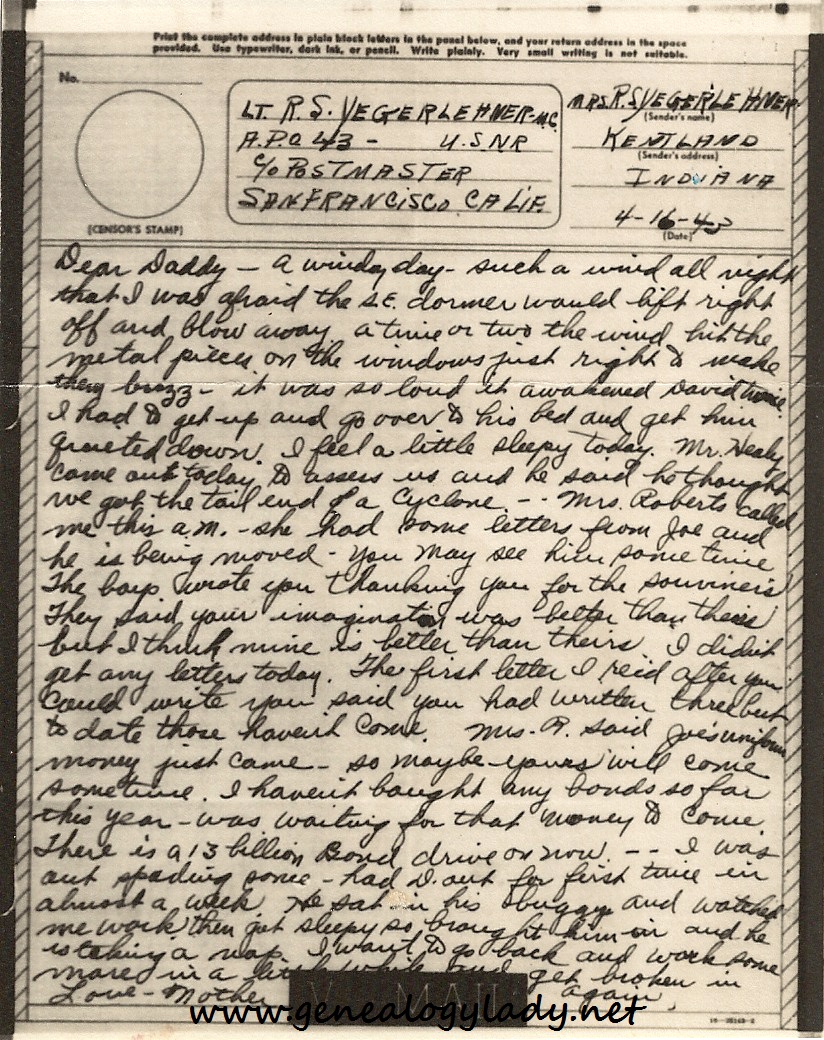 Print the complete address in plain block letters in the panel below, and your return address in the space
provided. Use typewriter, dark ink, or pencil. Write plainly. Very small writing is not suitable.
No.
(CENSOR'S STAMP)
LT. R. S. YEGERLEHNER-M.C.
A.P.O 43 - U.S.N.R
C/O POSTMASTER
SANFRANCISCO CALIF.
MRS. R. S YEGERLEHNER
(Sender's name)
KENTLAND
(Sender's address)
INDIANA
4-16-43
(Date)
Dear Daddy - A windy day - such a wind all night
that I was afraid the S.E. dormer would lift right
off and blow away, a time or two the wind hit the
metal pieces on the windows just right to make
them buzz - it was so loud it awakened David twice.
I had to get up and go over to his bed and get him
quieted down. I feel a little sleepy today. Mr. Healy
came out today to assess us and he said he thought
we got the tail end of a cyclone. -- Mrs. Roberts called
me this a.m. - she had some letters from Joe and
he is being moved - you may see him some time
The boys wrote you thanking you for the souviners
They said your imagination was better than theirs
but I think mine is better than theirs. I didn't
get any letters today. The first letter I rec'd after you
could write you said you had written three but
to date those haven't come. Mrs. R. said Joe's uniform
money just came - so maybe yours will come
sometime. I haven't bought any bonds so far
this year - was waiting for that money to come.
There is a 13 billion Bond drive on now. -- I was
out spading some - had D. out for first time in
almost a week. He sat in his buggy and watched
me work then got sleepy so brought him in and he
is taking a nap. I want to go back and work some
more in a little while and get broken in
Love - Mother again.
V - MAIL
www.genealogylady.net